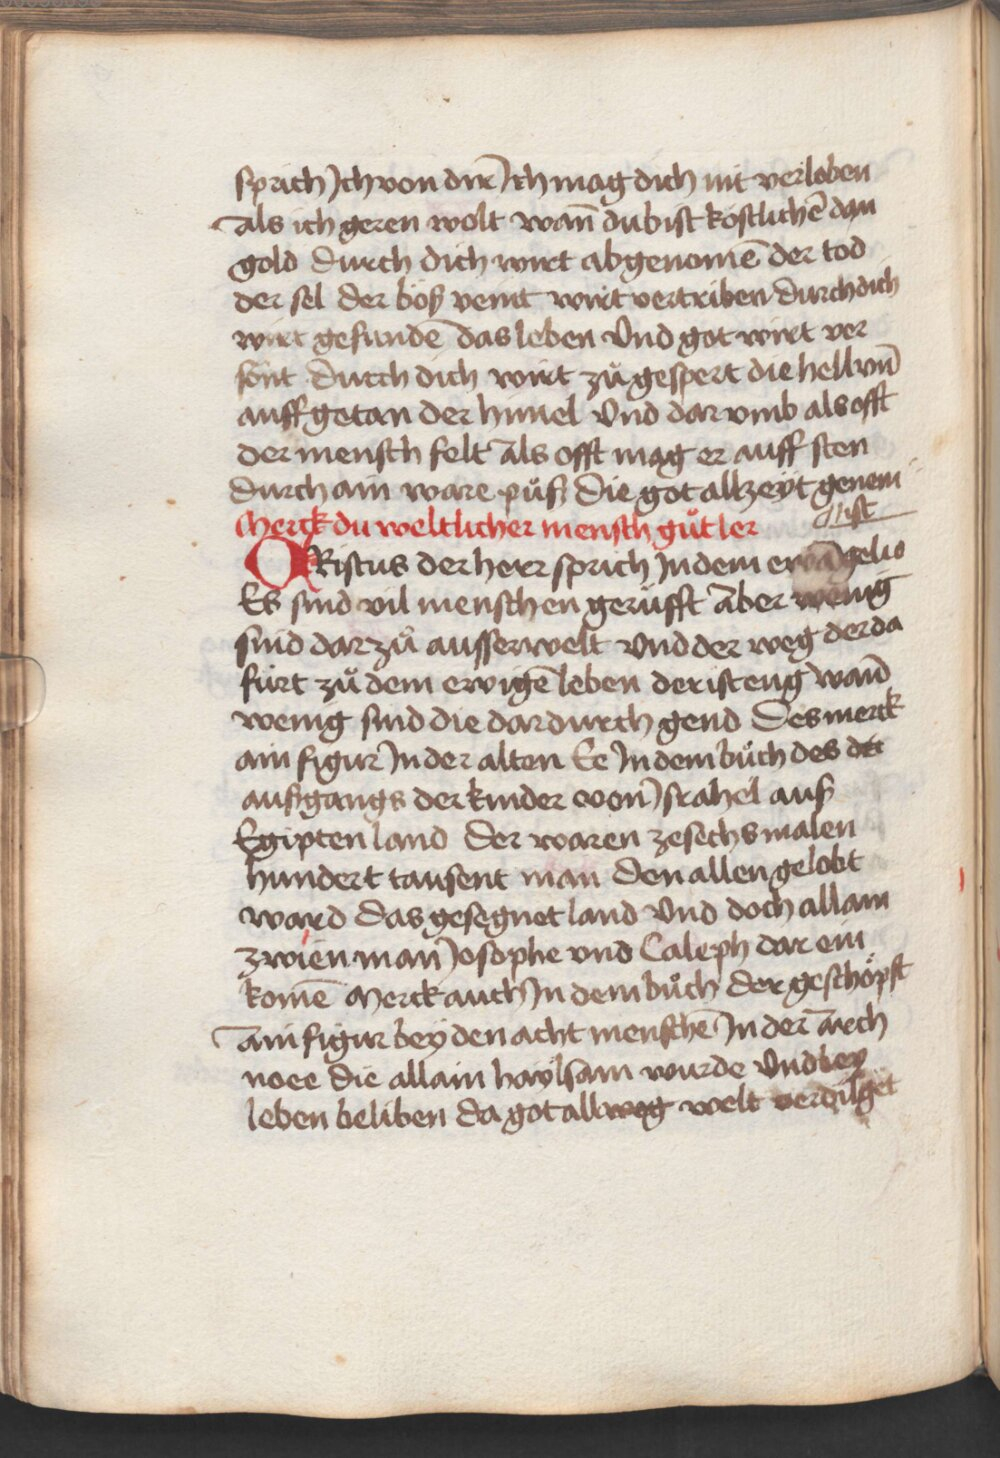 sprich Ich von dir̄ Ich mag dich nit verloben
Als ich geren wolt wañ du bist kostlichē dan
gold durch dich wirt abgenomē der tod
der sel der böß veint wirt vertriben durch dich
wirt gefundē das leben Vnd got wirt ver
sönt durch dich wirt zů gespert die hell vñ
auff getan der himel Vnd dar vmb als offt
der mensch felt Als offt mag er auff sten
durch ain ware půß die got allzeÿt genem
ist
Merck du weltlicher mensch gůt ler
CRistus der herr sprich In dem ewāgelio
Es sind vil menschen gerüfft Aber wenig
sind dar zů ausserwelt Vnd der weg der da
fürt zů dem ewigē leben der ist eng wañ
wenig sind die dardurch gend Des merck
ain figur In der alten Ee In dem bůch des
außgangs der kinder von Israhel auß
Egipten land Der waren zesechs malen
hundert tausent man Den allen gelobt
ward das gesegnet land Vnd doch allain
zwien man Iosophe vnd Caleph dar ein
komē Merck auch In dem bůch der geschöpft
Ain figur beÿ den acht menschē In der Arch
noee die allain haÿlsam wurde Vnd bey
leben beliben da got all weg welt verdilget